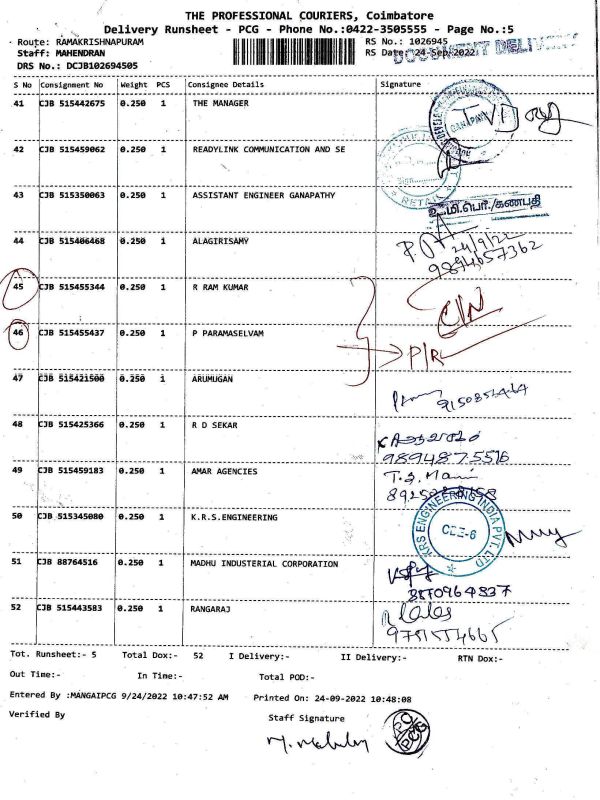 THE PROFESSIONAL COURIERS, Coimbatore
Delivery Runsheet - PCG - Phone No.:0422-3505555 - Page No.:5
Route: RAMAKRISHNAPURAM RS No.: 1026945
Staff: MAHENDRAN RS Date: 24-Sep-2022
DOCUMENT DELIVERY
DRS No.: DCJB102694505
S No Consignment No Weight PCS Consignee Details Signature
41 CJB 515442675 0.250 1 THE MANAGER
42 CJB 515459062 0.250 1 READYLINK COMMUNICATION AND SE
RETAIL
43 CJB 515350063 0.250 1 ASSISTANT ENGINEER GANAPATHY
உ.மி.பொ./கணபதி
44 CJB 515406468 0.250 1 ALAGIRISAMY
24/9/22
9894657362
45 CJB 515455344 0.250 1 R RAM KUMAR
C/N
46 CJB 515455437 0.250 1 P PARAMASELVAM
P/R
47 CJB 515421500 0.250 1 ARUMUGAN
48 CJB 515425366 0.250 1 R D SEKAR
9894875516
49 CJB 515459183 0.250 1 AMAR AGENCIES
T.S. Mani
50 CJB 515345080 0.250 1 K.R.S.ENGINEERING
KRS ENGINEERING INDIA PVT. LTD
CBE-6
51 CJB 88764516 0.250 1 MADHU INDUSTERIAL CORPORATION
8870964837
52 CJB 515443583 0.250 1 RANGARAJ
Tot. Runsheet:- 5 Total Dox:- 52 I Delivery:- II Delivery:- RTN Dox:-
Out Time:- In Time:- Total POD:-
Entered By :MANGAIPCG 9/24/2022 10:47:52 AM Printed On: 24-09-2022 10:48:08
Verified By Staff Signature
PCG